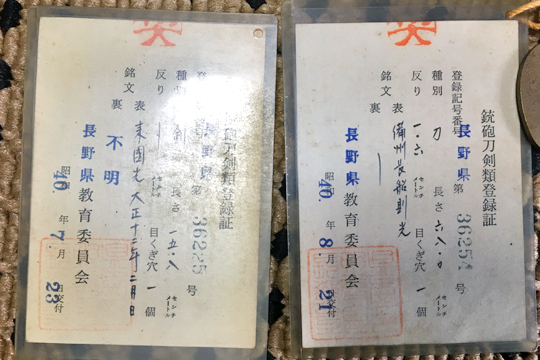 銃砲刀剣類登録証
登録記号番号 長野県 第 36254 号
種別 刀 長さ 六八・〇 センチメートル
反り 一・六 センチメートル 目くぎ穴 一 個
銘文 表 備州長船則光
裏
長野県教育委員会
昭和 40. 年 8. 月 21 日交付
銃砲刀剣類登録証
登録記号番号 長野県 第 36225 号
種別 剣 長さ 一五・八 センチメートル
反り センチメートル 目くぎ穴 一 個
銘文 表 来国光 大正十二年二月日
裏 不明
長野県教育委員会
昭和 40. 年 7. 月 23 日交付